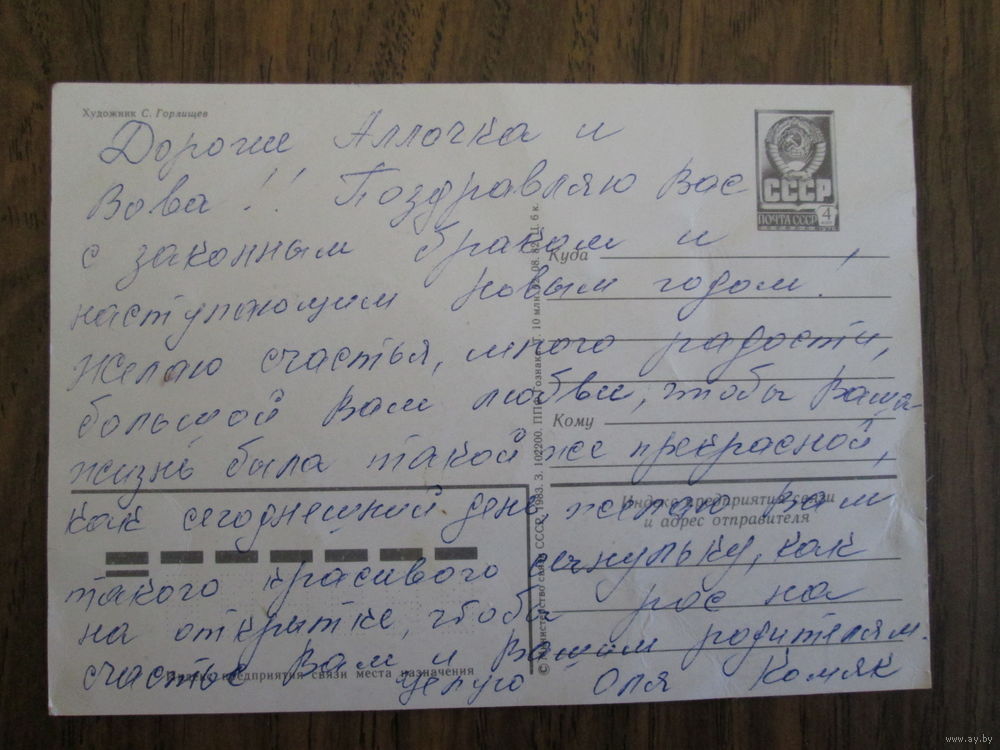 Художник С. Горлищев
Дорогие Аллочка и
Вова!! Поздравляю Вас
с законным браком и
наступающим Новым годом!
Желаю счастья, много радости,
большой Вам любви, чтобы Ваша
жизнь была такой же прекрасной,
как сегоднешний день, желаю Вам
такого красивого как
на открытке, чтобы рос на
счастье Вам и Вашим родителям.
целую Оля Комяк
СССР
ПОЧТА СССР 4
Куда
Кому
Индекс предприятия связи
и адрес отправителя
Индекс предприятия связи места назначения
© Министерство связи СССР, 1983. З. 102200. ППФ Гознака. 10 млн. 08. 82. Ц. 6 к.
www.ay.by